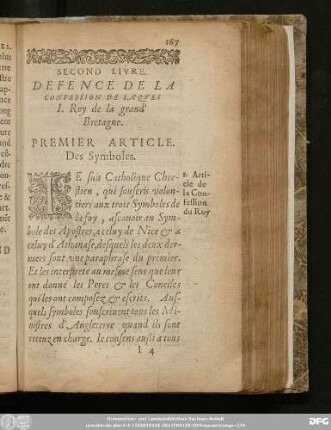 167
SECOND LIVRE.
DEFENCE DE LA
CONFESSION DE IAQVES
I. Roy de la grand'
Bretagne.
PREMIER ARTICLE.
Des Symboles.
IE suis Catholique Chre-
stien, qui souscris volon-
tiers aux trois Symboles de
la foy, asçauoir au Sym-
bole des Apostres, a celuy de Nice & a
celuy d'Athanase, desquels les deux der-
niers sont vne paraphrase du premier.
Et les interprete au mesme sens que leur
ont donné les Peres & les Conciles
qui les ont composez & escrits. Aus-
quels symboles souscriuent tous les Mi-
nistres d'Angleterre quand ils sont
receuz en charge. Ie consens aussi a tous
l 4
1. Arti-
cle de
la Con-
fession
du Roy